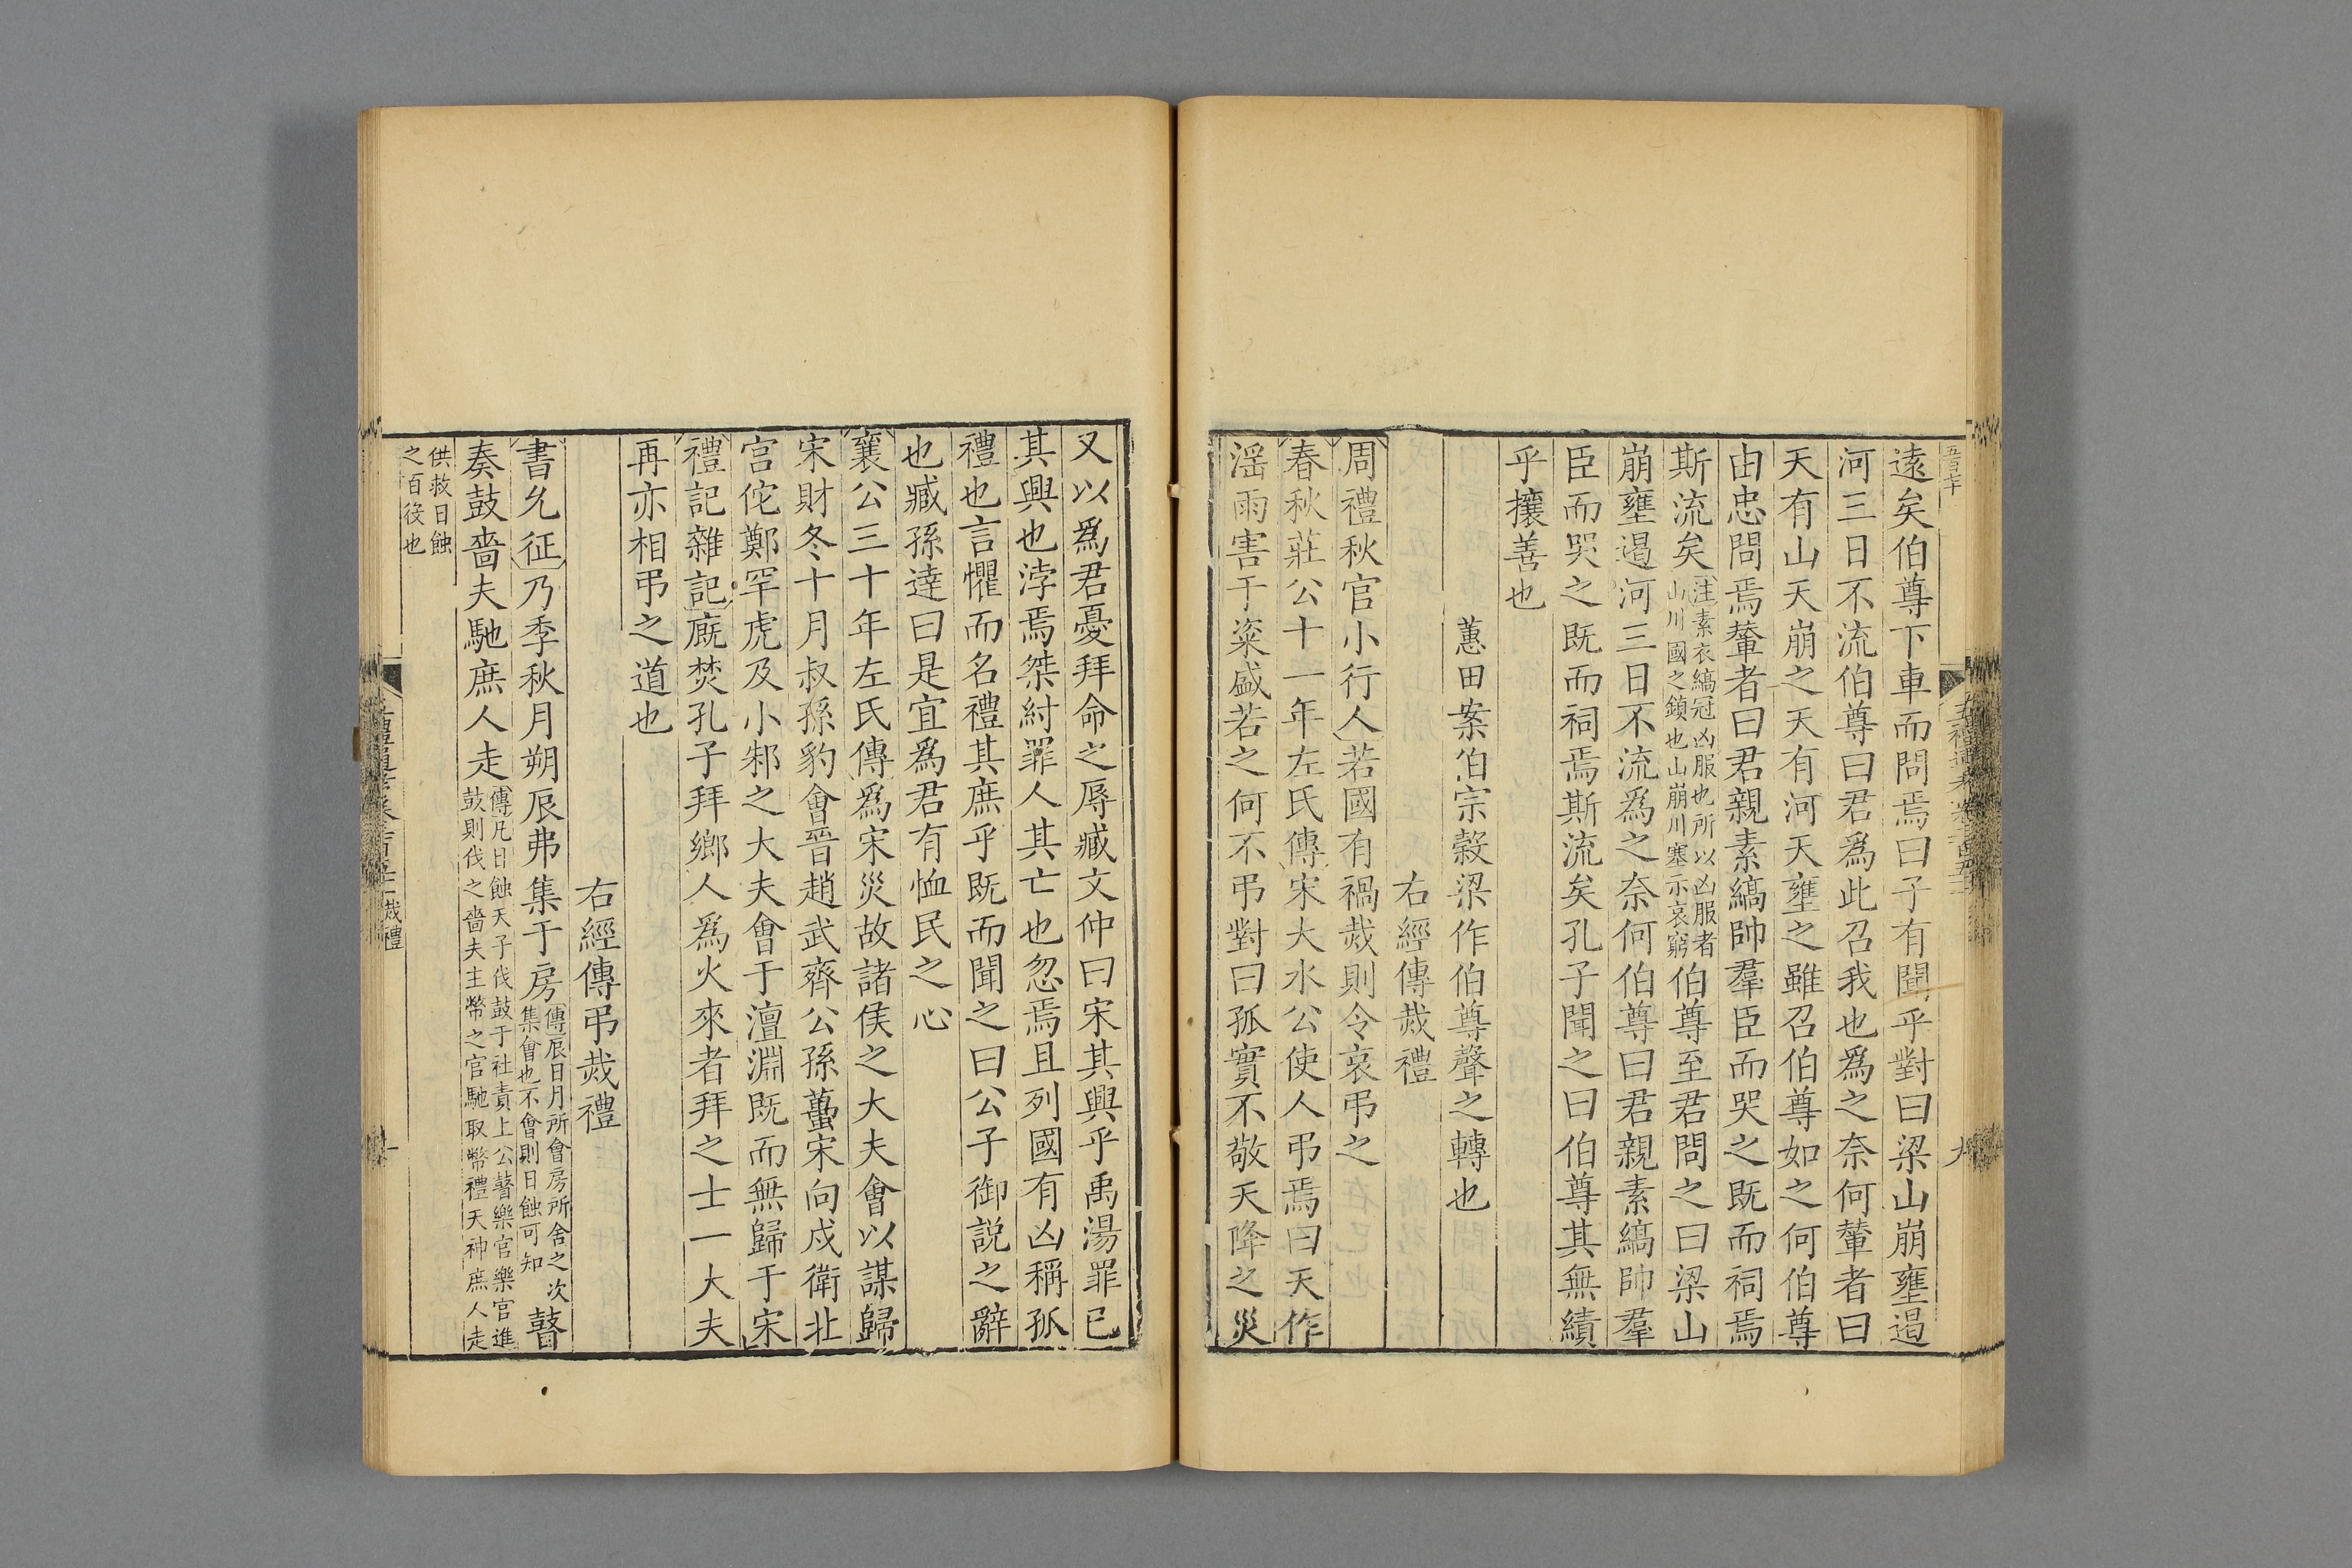 遠矣伯尊下車而問焉曰子有聞乎對曰梁山崩壅遏
河三日不流伯尊曰君爲此召我也爲之奈何輦者曰
天有山天崩之天有河天壅之雖召伯尊如之何伯尊
由忠問焉輦者曰君親素縞帥羣臣而哭之既而祠焉
斯流矣注素衣縞冠凶服也所以凶服者山川國之鎮也山崩川塞示哀窮伯尊至君問之曰梁山
崩壅遏河三日不流爲之奈何伯尊曰君親素縞帥羣
臣而哭之既而祠焉斯流矣孔子聞之曰伯尊其無績
乎攘善也
蕙田案伯宗穀梁作伯尊聲之轉也
右經傳烖禮
周禮秋官小行人若國有禍烖則令哀弔之
春秋莊公十一年左氏傳宋大水公使人弔焉曰天作
淫雨害于粢盛若之何不弔對曰孤實不敬天降之災
又以爲君憂拜命之辱臧文仲曰宋其興乎禹湯罪已
其興也浡焉桀紂罪人其亡也忽焉且列國有凶稱孤
禮也言懼而名禮其庶乎既而聞之曰公子御説之辭
也臧孫達曰是宜爲君有恤民之心
襄公三十年左氏傳爲宋災故諸侯之大夫會以謀歸
宋財冬十月叔孫豹會晉趙武齊公孫蠆宋向戌衛北
宮佗鄭罕虎及小邾之大夫會于澶淵既而無歸于宋
禮記雜記廐焚孔子拜鄉人爲火來者拜之士一大夫
再亦相弔之道也
右經傳弔烖禮
書允征乃季秋月朔辰弗集于房傳辰日月所會房所舍之次集會也不會則日蝕可知瞽
奏鼓嗇夫馳庶人走傳凡日蝕天子伐鼓于社責上公瞽樂官樂官進鼓則伐之嗇夫主幣之官馳取幣禮天神庶人走
供救日蝕之百役也